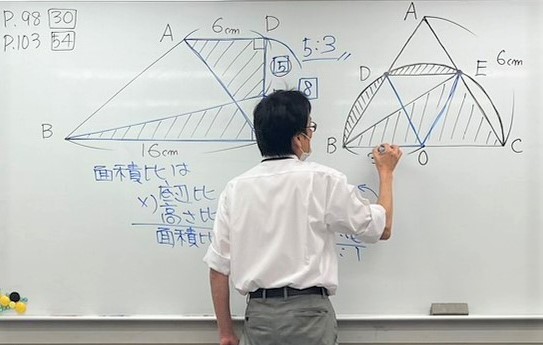 P.98 30
P.103 54
A 6cm D
5:3
5
8
B
16cm
A
6cm
D E
B O C
面積比は
底辺比
×)高さ比
面積比
:1